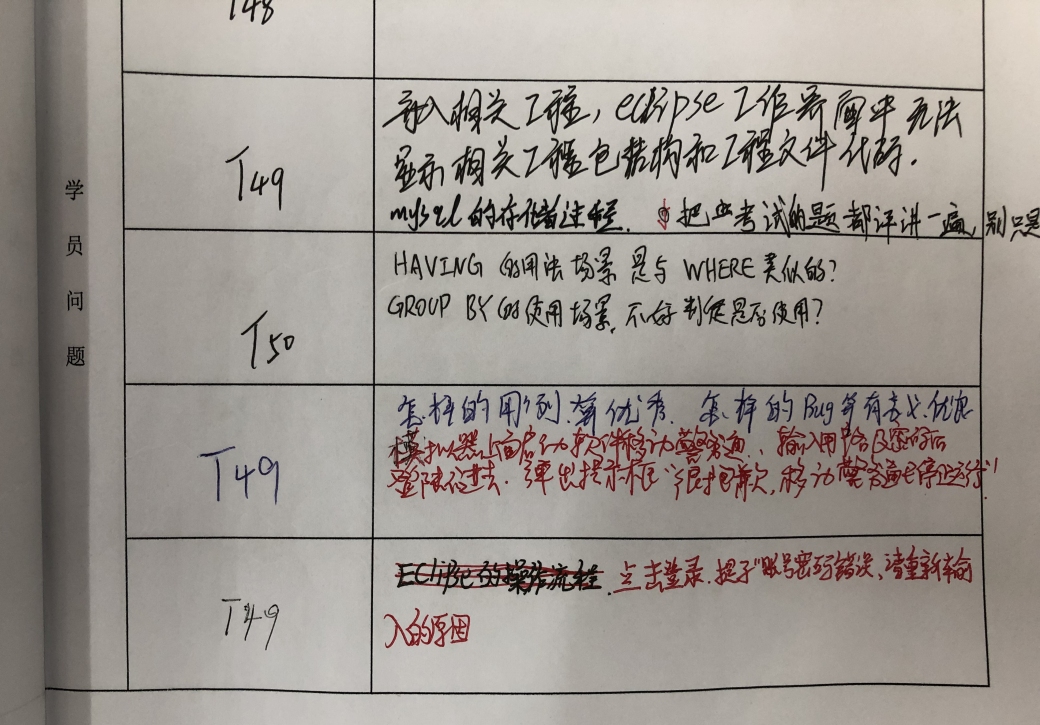 T48
学员问题
T49
导入相关工程，eclipse工作界面中无法
显示相关工程包结构和工程文件代码．
mysql的存储过程． 把 考试的题都评讲一遍，别只是
T50
HAVING 的用法场景是与 WHERE 类似的？
GROUP BY 的使用场景，不好判定是否使用？
T49
怎样的用例算优秀．怎样的Bug算有意义、优良
模拟器上面启动软件移动警务通，输入用户名及密码后
登陆进去．弹出提示框“很抱歉，移动警务通已停止运行”
T49
Eclipse的操作流程．点击登录．提示“账号密码错误、请重新输
入的原因